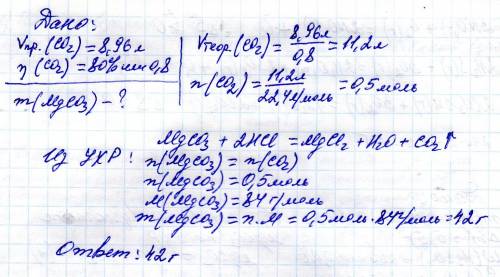 Дано:
Vпр.(CO₂)=8,96л
η(CO₂)=80% или 0,8
m(MgCO₃)-?
Vтеор.(CO₂)=8,96л/0,8=11,2л
n(CO₂)=11,2л/22,4л/моль=0,5моль
MgCO₃+2HCl=MgCl₂+H₂O+CO₂↑
Из УХР: n(MgCO₃)=n(CO₂)
n(MgCO₃)=0,5моль
M(MgCO₃)=84г/моль
m(MgCO₃)=n·M=0,5моль·84г/моль=42г
Ответ: 42г